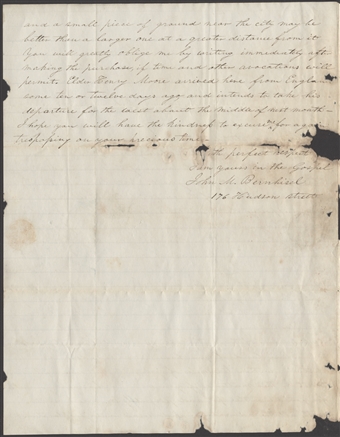 and a small piece of ground near the city may be
better than a larger one at a greater distance from it.
You will greatly oblige me by writing immediately after
making the purchase, if time and other avocations will
permit. Elder Henry More arrived here from England
some ten or twelve days ago and intends to take his
departure for the west about the middle of next month
I hope you will have the kindness to excuse me for again
trespassing on your precious time.
With perfect respect
I am yours in the Gospel
John M. Bernhisel
176 Hudson street